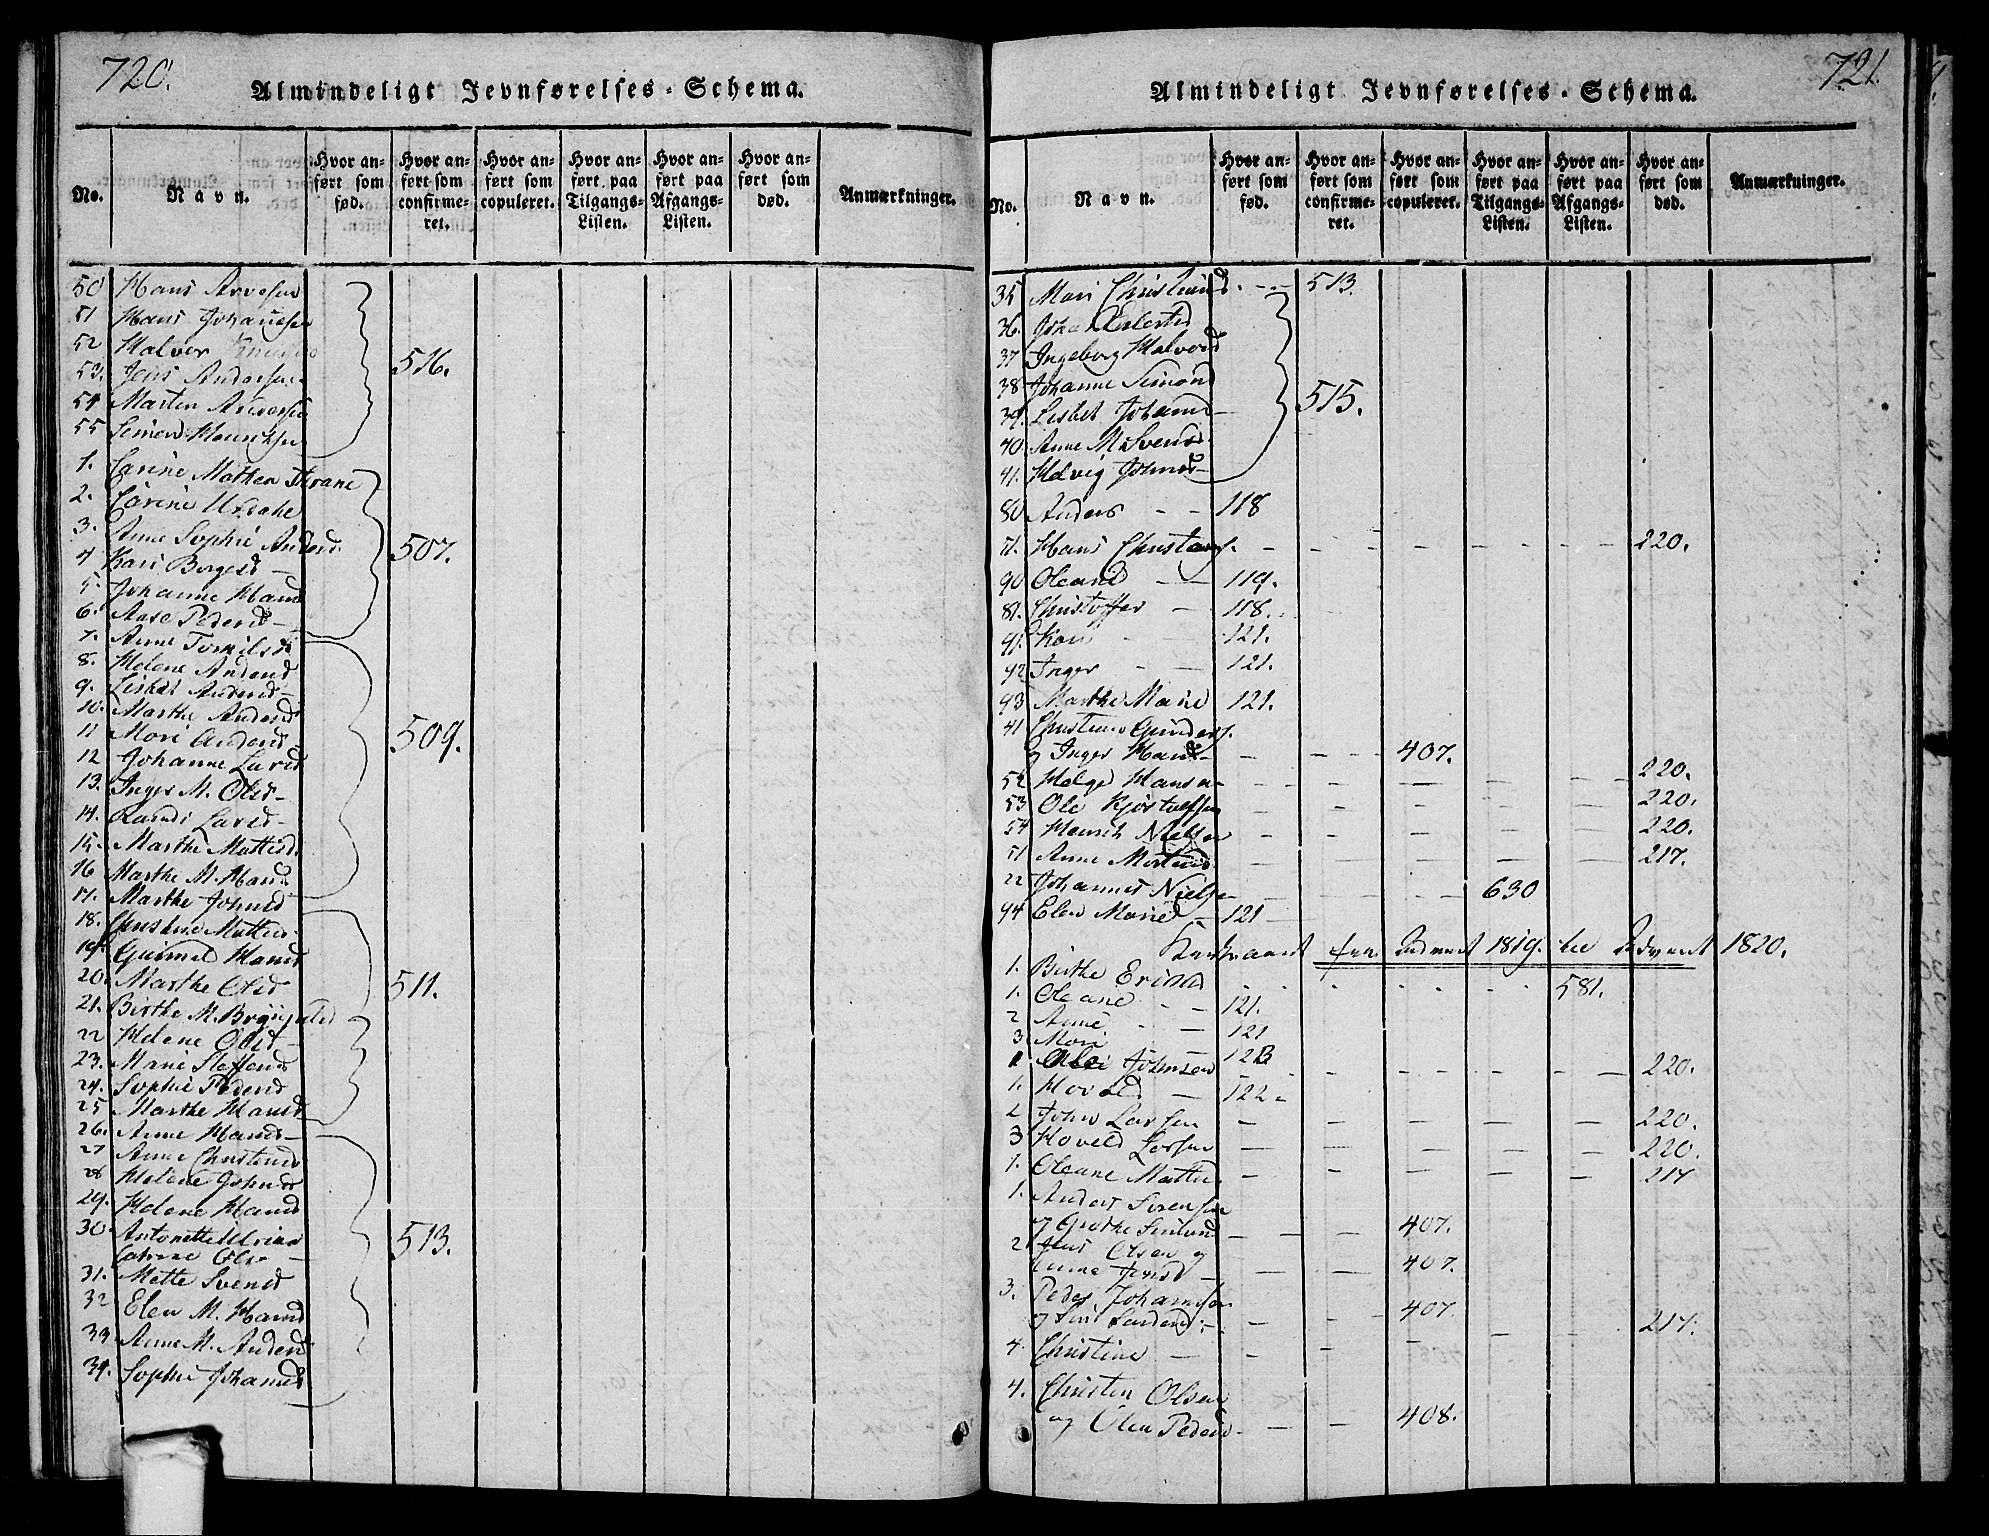 720.
Almindeligt Jevnførelses-Schema.
No.
Navn.
Hvor an-
ført som
fød.
Hvor an-
ført som
confirme-
ret.
Hvor an-
ført som
copuleret.
Hvor an-
ført paa
Tilgangs-
Listen.
Hvor an-
ført paa
Afgangs-
Listen.
Hvor an-
ført som
død.
Anmærkninger.
50
51 Hans
52 Halver
53. Jens Andersen
516.
54 Morten Andersen
55
1. Carine Mathea Thrane
2. Carine
3. Anne Sophie Anders
507.
4 Kari
5. Johanne Hansd
6. Aase Pedersd
7. Anne
8. Helene Andersd
9. Lisbet Andersd
10. Marthe Andersd
11 Mari Andersd
509.
12 Johanne Larsd
13. Inger M. Olsd
14. Randi Larsd
15. Marthe Mattisd
16 Marthe M. Hansd
17. Marthe Johnsd
18. Christine
19. Gunnild Hansd
20. Marthe Olsd
511.
21. Birthe M.
22 Helene Olsd
23. Marie Steffensd
24. Sophie Pedersd
25 Marthe Hansd
26. Anne Hansd
27 Anne Christensd
28 Helene Johnsd
29. Helene Hansd
30. Antonette
Cathrine Olsd
513.
31. Mette Svensd
32 Elen M. Hansd
33. Anne M. Andersd
34. Sophie Johansd
721.
Almindeligt Jevnførelses-Schema.
No.
Navn.
Hvor an-
ført som
fød.
Hvor an-
ført som
confirme-
ret.
Hvor an-
ført som
copuleret.
Hvor an-
ført paa
Tilgangs-
Listen.
Hvor an-
ført paa
Afgangs-
Listen.
Hvor an-
ført som
død.
Anmærkninger.
35 Mari 513.
36.
37 Ingeborg Halvorsd
38 Johanne Simonsd
39. Lisbet Johansd
515.
40 Anne M. Svensd
41. Helvig Johnsd
80 Anders 118
51. Hans 220.
90 Oleane 119.
81. Christoffer 118.
91. Kari 121.
92 Inger 121.
93 Marthe Marie 121.
41 Christen Gunders.
og Inger Hansd 407.
52 Helge Hansen 220.
53 Ole Kjøstolfsen 220.
54 Henrich Nielsen 220.
51 Anne Mortensd 217.
22 Johannes Nielsen 630
94 Elen Marie 121
Kirkeaaret fra Advent 1819. til Advent 1820.
1. Birthe Ericsd 581.
1. Oleane 121.
2 Anne 121
3 Mari 123
1 Johnsen 220.
1. Hovald 122
2 John Larsen 220.
3 Hoveld Larsen 220.
1. Oleane 217
1. Anders Sørensen
og Grethe 407.
2 Jens Olsen og
Anne Jensd 407.
3. Peder Johannesen
og Siri 407 217.
4. Christine
4. Christen Olsen
og Olea Pedersd 408.